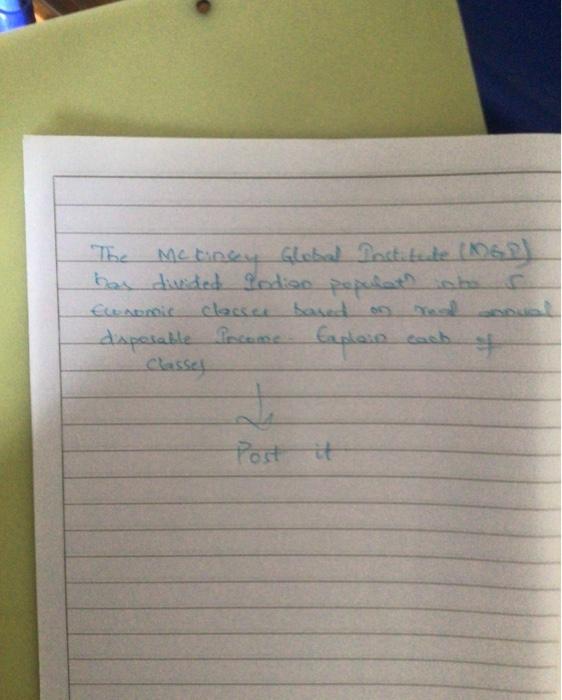 The Mckinsey Global Institute (MGI)
has divided Indian populatn into 5
Economic classes based on real annual
disposable Income. Explain each of
classes
Post it